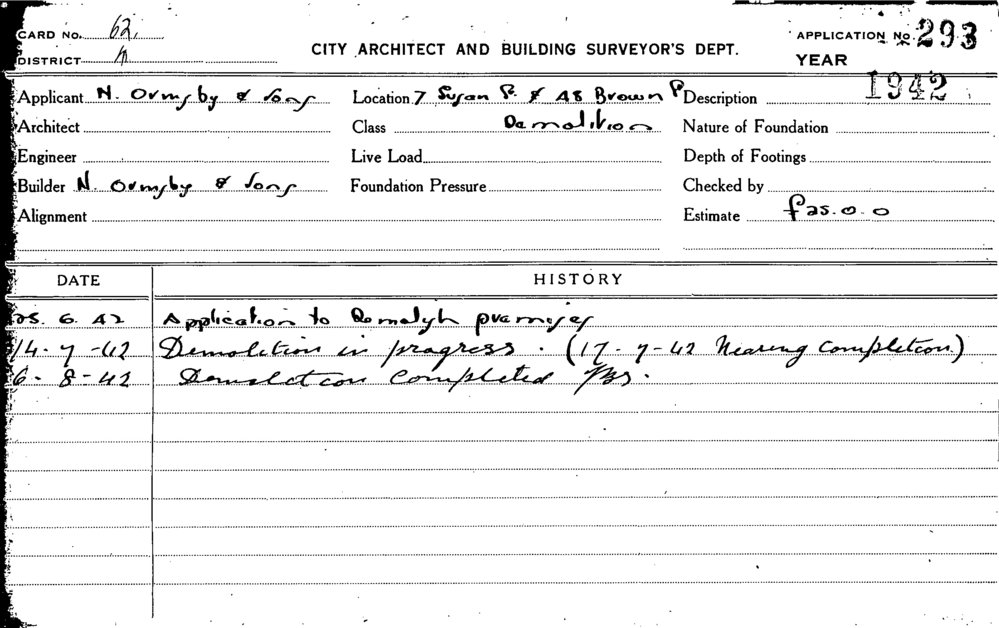 CARD No. 62.
APPLICATION No. 293
DISTRICT
CITY ARCHITECT AND BUILDING SURVEYOR'S DEPT.
YEAR 1942
Applicant N. Ormsby & Sons
Location 7 Susan St. & 48 Brown
Description
Architect
Class Demolition
Nature of Foundation
Engineer
Live Load
Depth of Footings
Builder N. Ormsby & Sons
Foundation Pressure
Checked by
Alignment
Estimate £25.0.0
DATE HISTORY
25. 6. 42 Application to Demolish premises
14-7-42 Demolition in progress. (17-7-42 Nearing completion)
6-8-42 Demolition Completed